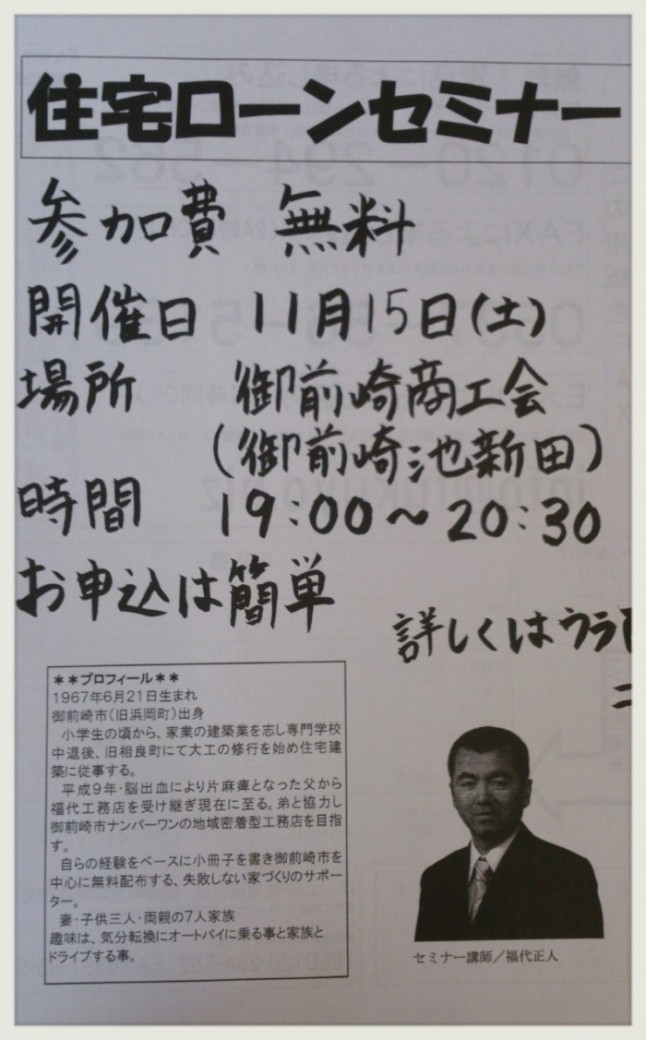 住宅ローンセミナー
参加費 無料
開催日 11月15日(土)
場所 御前崎商工会
(御前崎池新田)
時間 19:00～20:30
お申込は簡単
詳しくはウラ
**プロフィール**
1967年6月21日生まれ
御前崎市(旧浜岡町)出身
小学生の頃から、家業の建築業を志し専門学校
中退後、旧相良町にて大工の修行を始め住宅建
築に従事する。
平成9年・脳出血により片麻痺となった父から
福代工務店を受け継ぎ現在に至る。弟と協力し
御前崎市ナンバーワンの地域密着型工務店を目指
す。
自らの経験をベースに小冊子を書き御前崎市を
中心に無料配布する、失敗しない家づくりのサポー
ター。
妻・子供三人・両親の7人家族
趣味は、気分転換にオートバイに乗る事と家族と
ドライブする事。
セミナー講師／福代正人